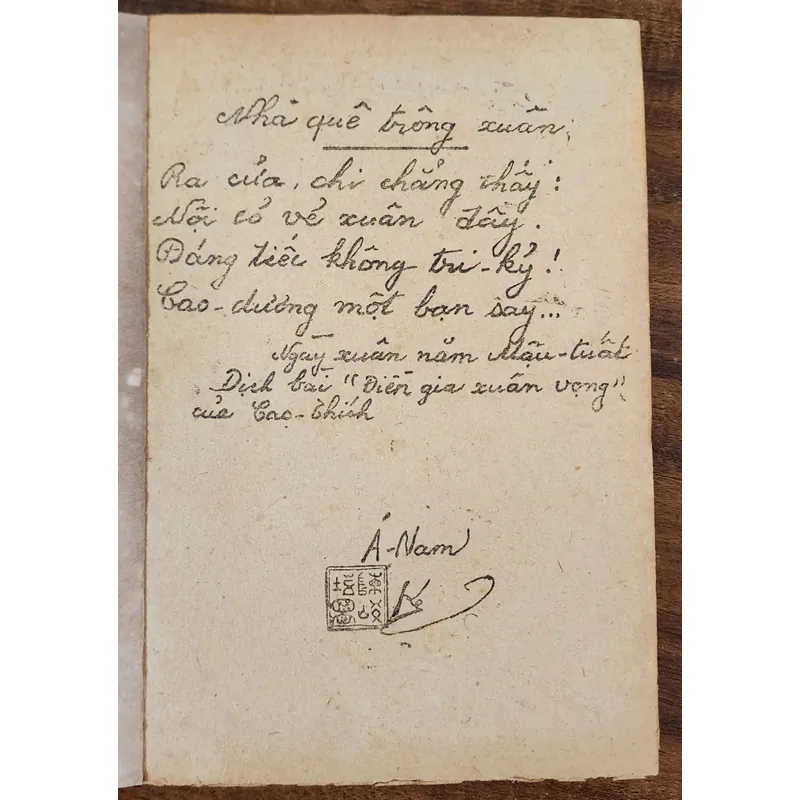 Nhà quê trông xuân
Ra cửa, chi chẳng thấy:
Nội cỏ vẻ xuân đầy.
Đáng tiếc không tri-kỷ!
Cao-dương một bạn say...
Ngày xuân năm Mậu-tuất
Dịch bài "Điền gia xuân vọng"
của Cao-Thích
Á-Nam